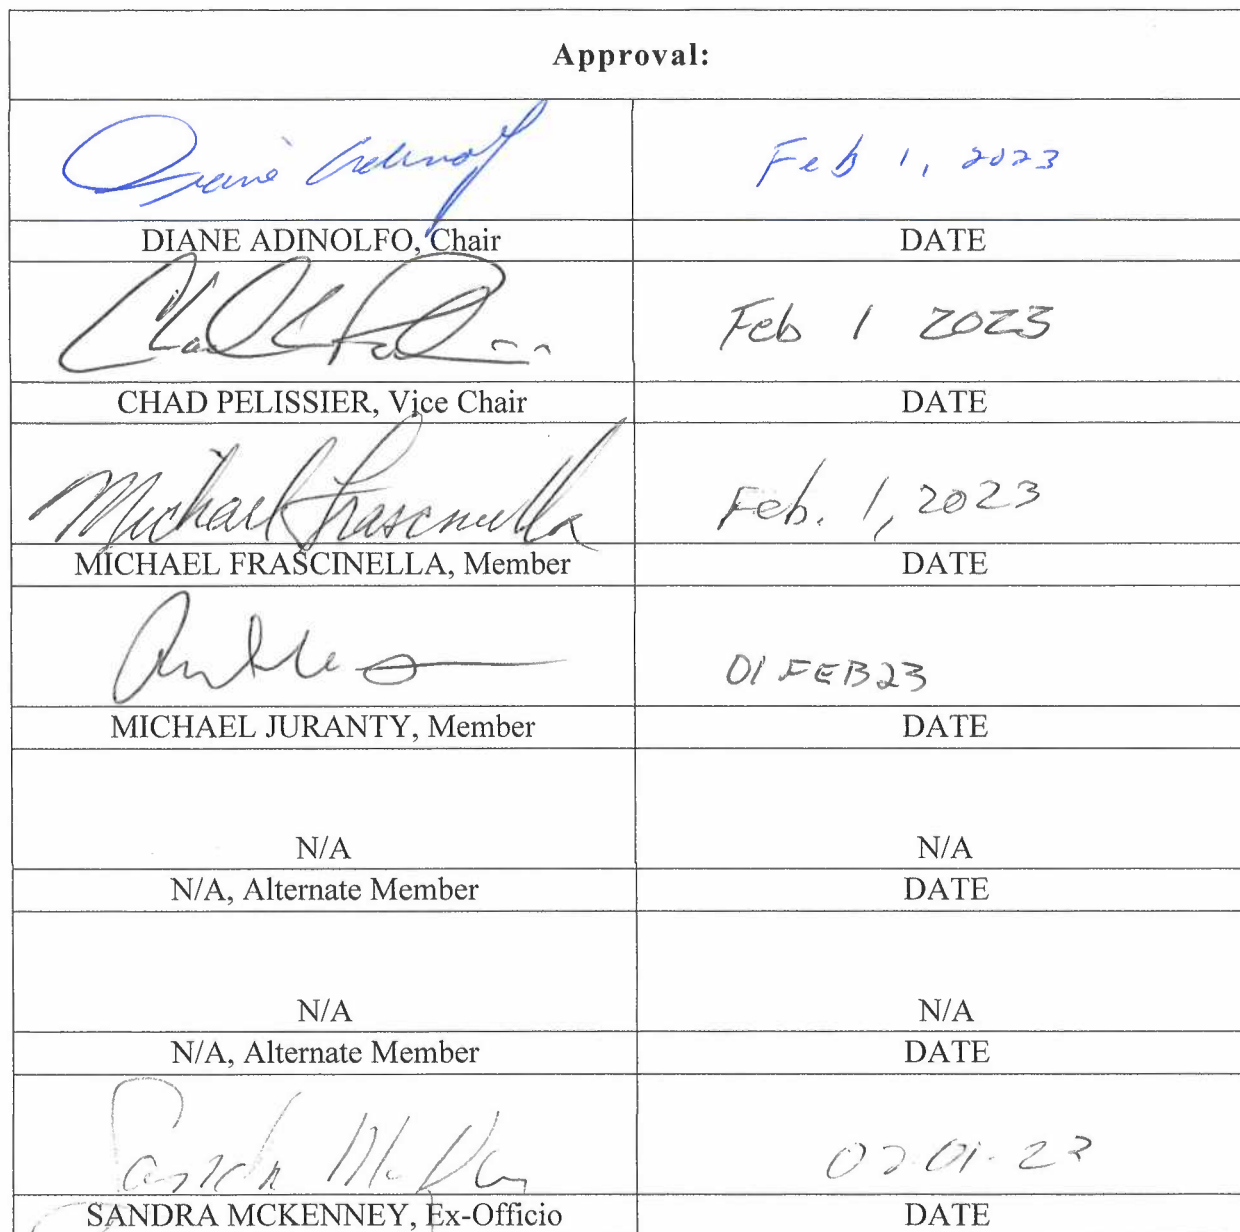 Approval:
Diane Adinolf Feb 1, 2023
DIANE ADINOLFO, Chair DATE
Feb 1 2023
CHAD PELISSIER, Vice Chair DATE
Michael Frascinella Feb. 1, 2023
MICHAEL FRASCINELLA, Member DATE
01 FEB 23
MICHAEL JURANTY, Member DATE
N/A N/A
N/A, Alternate Member DATE
N/A N/A
N/A, Alternate Member DATE
02.01.23
SANDRA MCKENNEY, Ex-Officio DATE